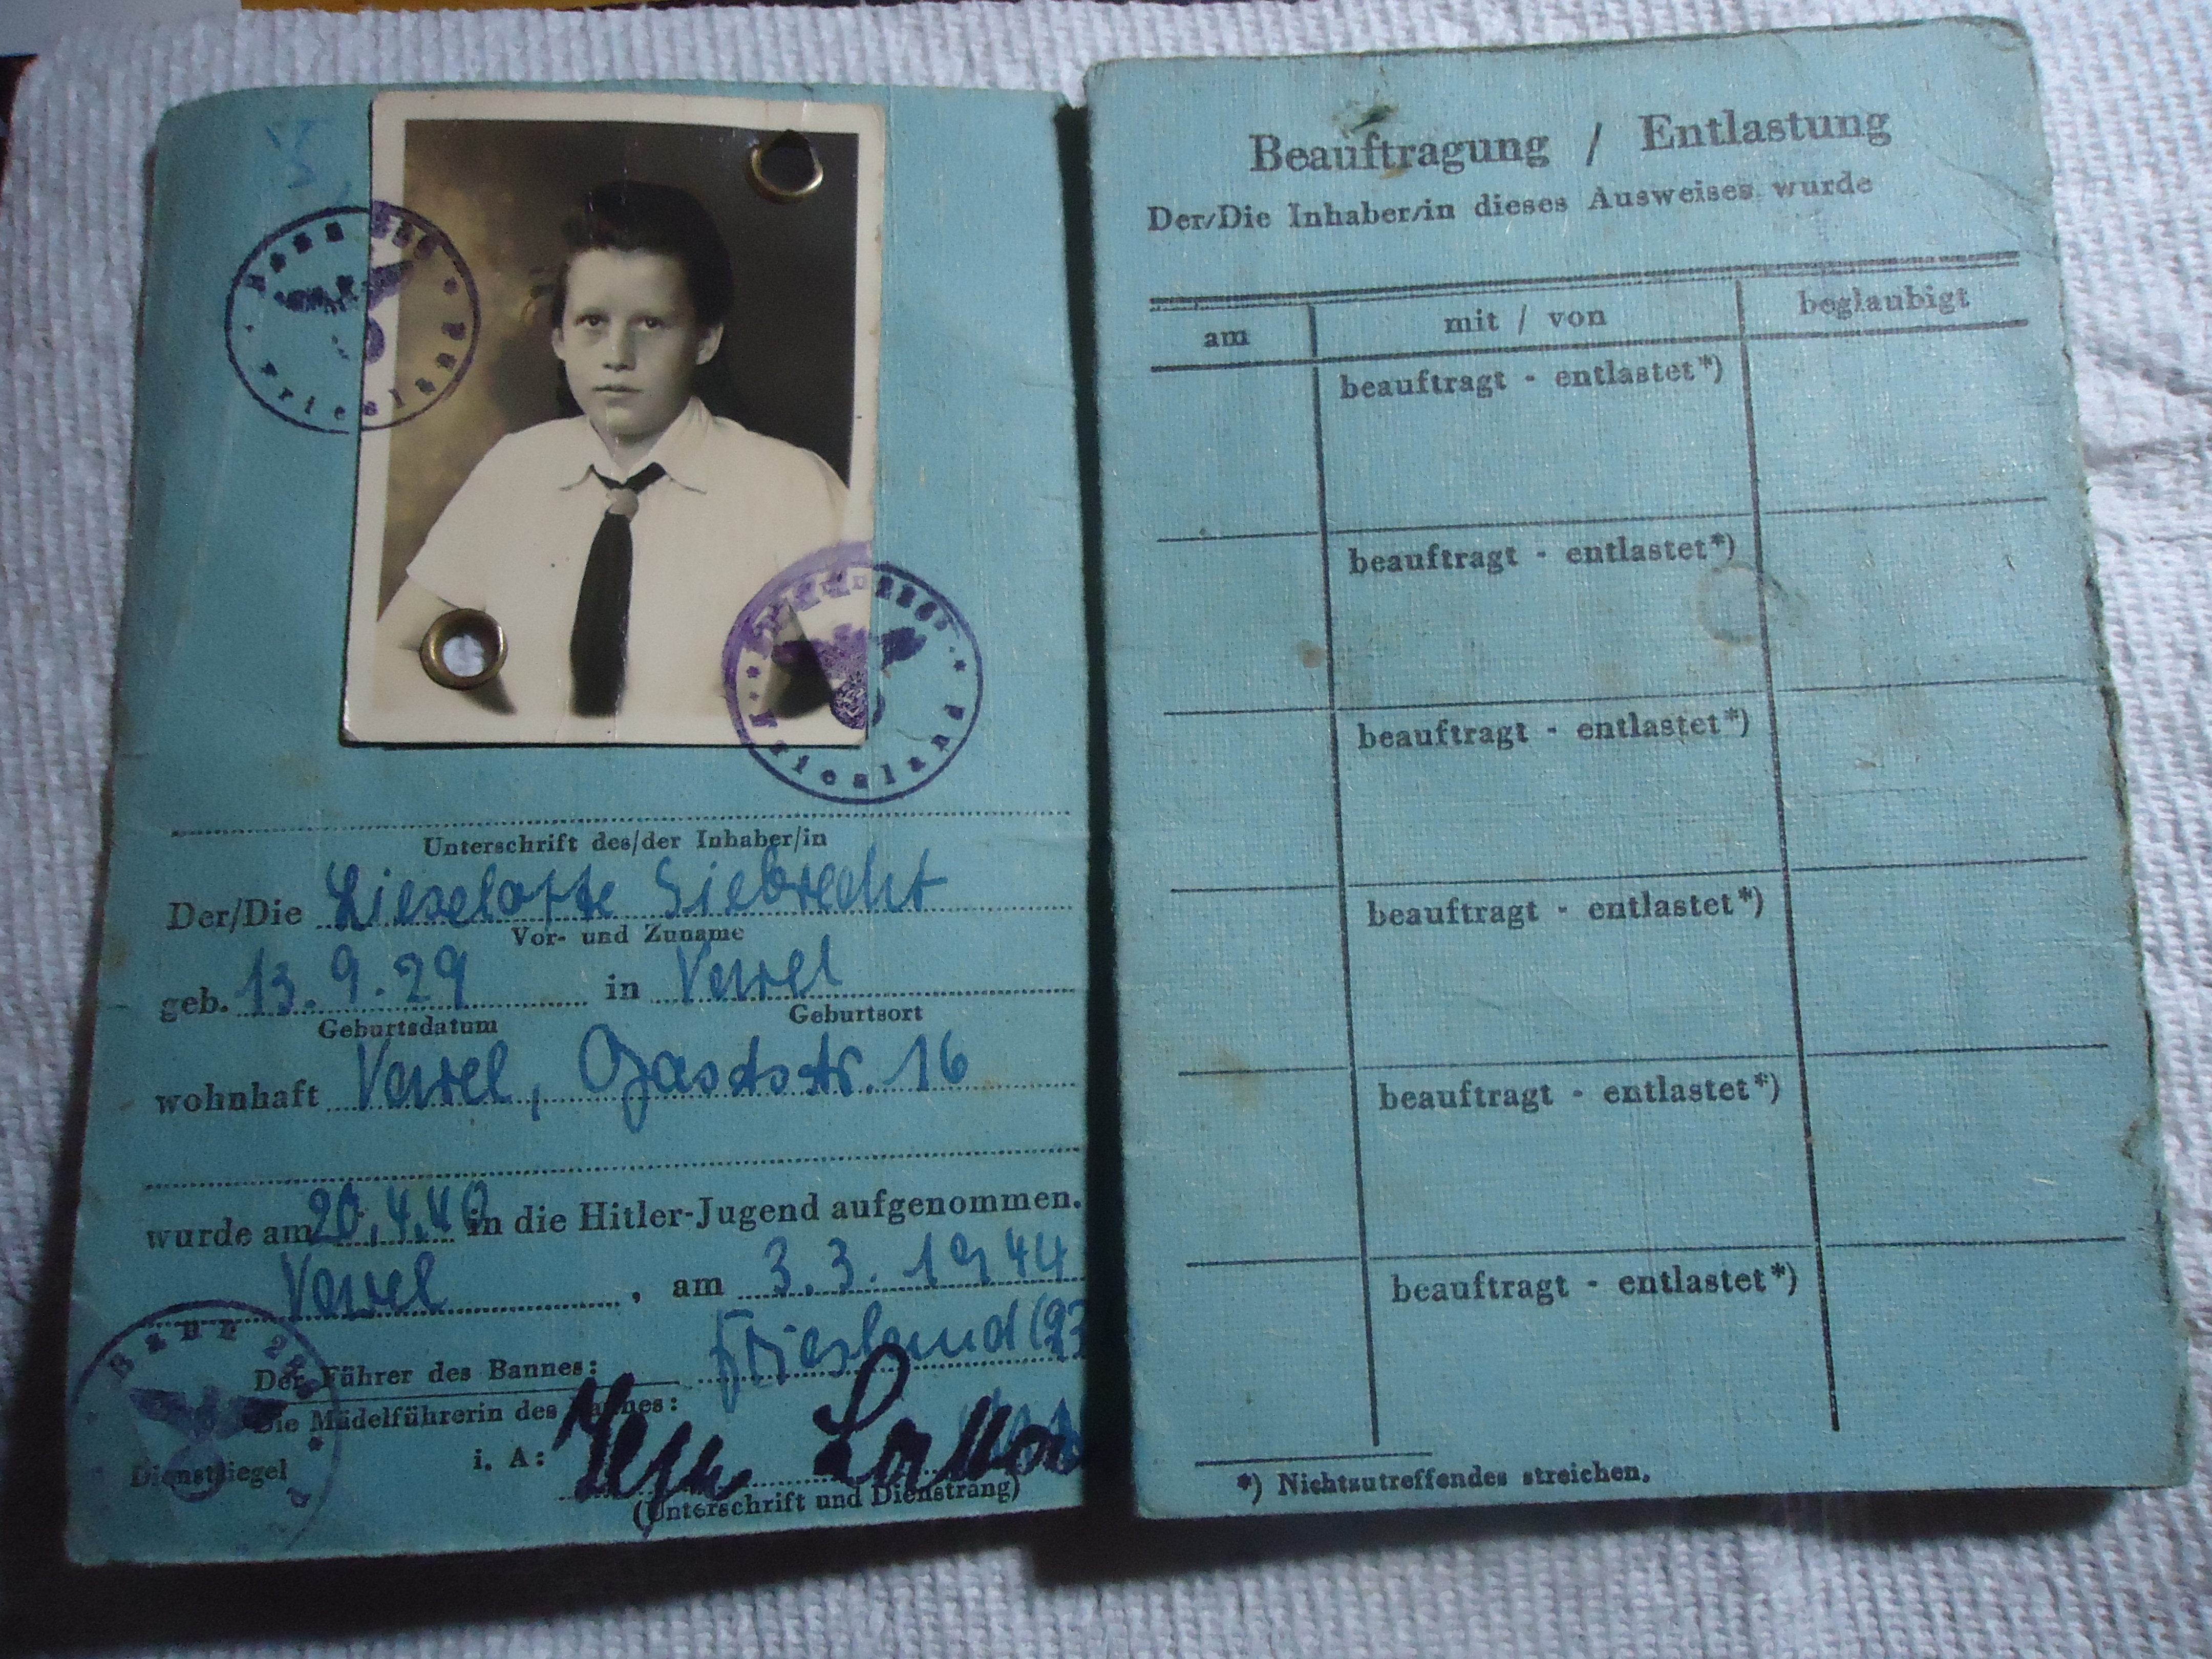 Bann
Friesland
Friesland
Unterschrift des/der Inhaber/in
Der/Die Lieselotte Siebrecht
Vor- und Zuname
geb. 13.9.29 in Varel
Geburtsdatum Geburtsort
wohnhaft Varel, Gaststr. 16
wurde am 20.4.40 in die Hitler-Jugend aufgenommen.
Varel, am 3.3.1944
Bann
Der Führer des Bannes: Friesland
Die Mädelführerin des Bannes:
Dienstsiegel i. A:
(Unterschrift und Dienstrang)
Beauftragung / Entlastung
Der/Die Inhaber/in dieses Ausweises wurde
am mit / von beglaubigt
beauftragt - entlastet*)
beauftragt - entlastet*)
beauftragt - entlastet*)
beauftragt - entlastet*)
beauftragt - entlastet*)
beauftragt - entlastet*)
*) Nichtzutreffendes streichen.